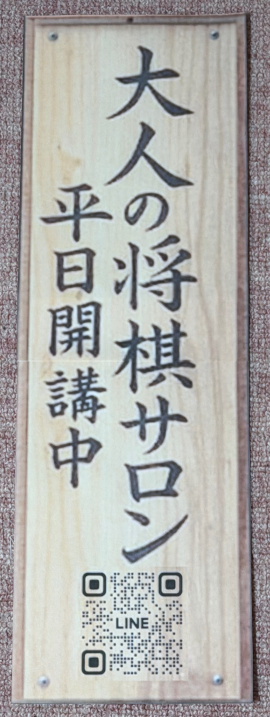 大人の将棋サロン
平日開講中
LINE